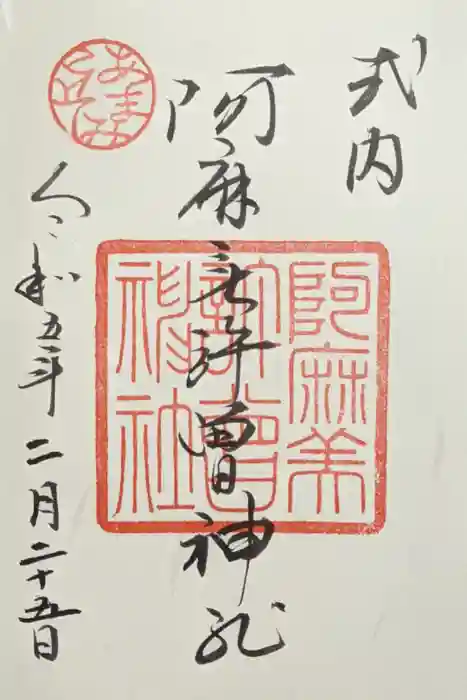 式内
阿麻美許曽神社
阿麻美
許曾
神社
令和五年二月二十五日